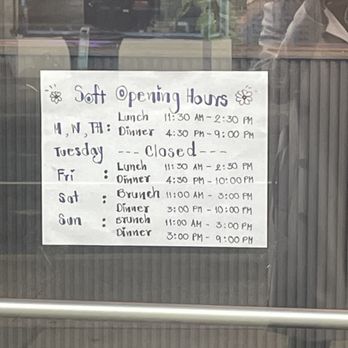 Soft Opening Hours
Lunch 11:30 AM - 2:30 PM
M, W, TH: Dinner 4:30 PM - 9:00 PM
Tuesday --- Closed ---
Lunch 11:30 AM - 2:30 PM
Fri : Dinner 4:30 PM - 10:00 PM
Sat : Brunch 11:00 AM - 3:00 PM
Dinner 3:00 PM - 10:00 PM
Sun : Brunch 11:00 AM - 3:00 PM
Dinner 3:00 PM - 9:00 PM